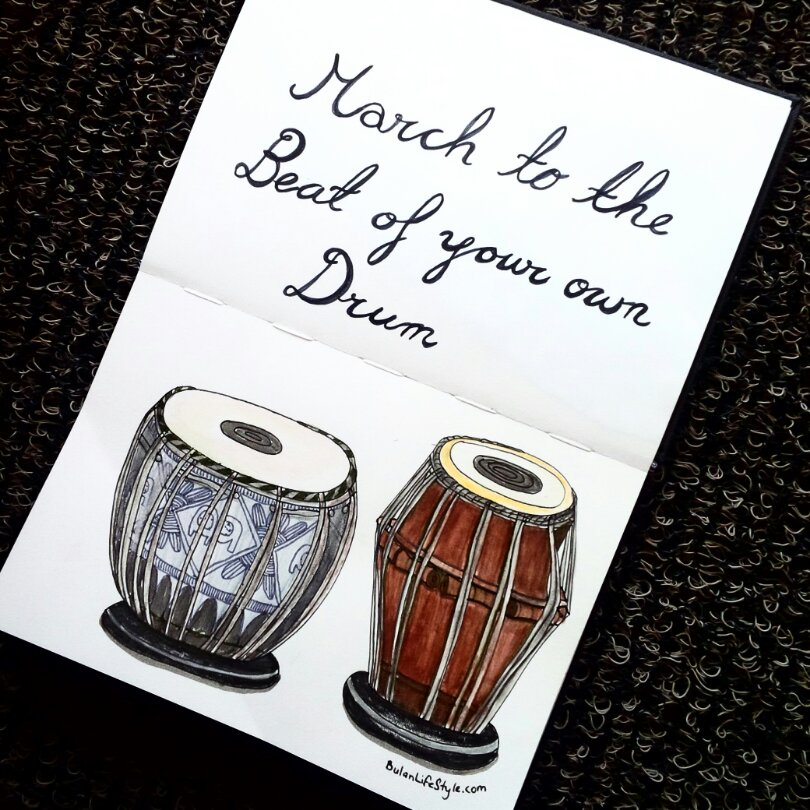 March to the
Beat of your own
Drum
BulanLifeStyle.com